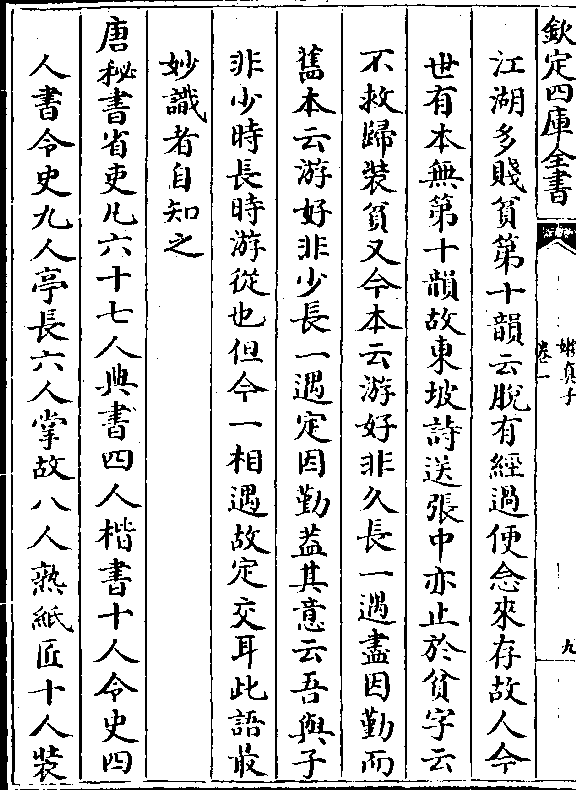 欽定四庫全書
嬾真子
卷一
九
江湖多賤貧第十韻云脫有經過便念來存故人今
世有本無第十韻故東坡詩送張中亦止於貧字云
不救歸裝貧又今本云游好非久長一遇盡因勤而
舊本云游好非少長一遇定因勤葢其意云吾與子
非少時長時游從也但今一相遇故定交耳此語㝡
妙識者自知之
唐秘書省吏凡六十七人典書四人楷書十人令史四
人書令史九人亭長六人掌故八人熟紙匠十人裝